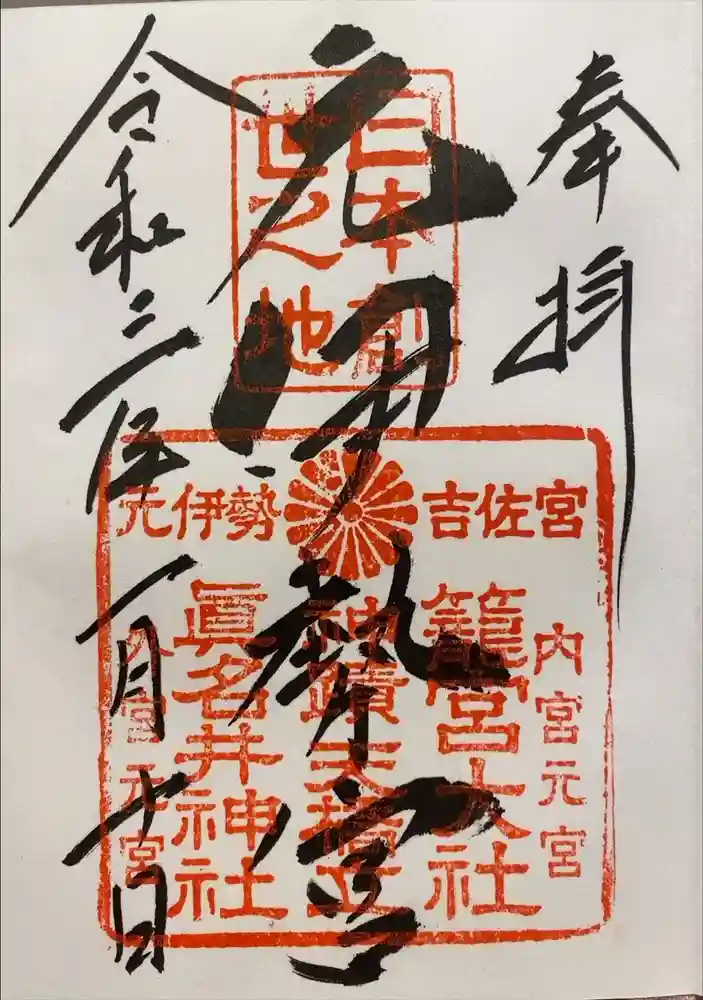 奉拝
元伊勢宮
令和三年一月十日
日本創
世之地
元伊勢 吉佐宮
内宮元宮
籠宮大社
神蹟天橋立
眞名井神社
外宮元宮